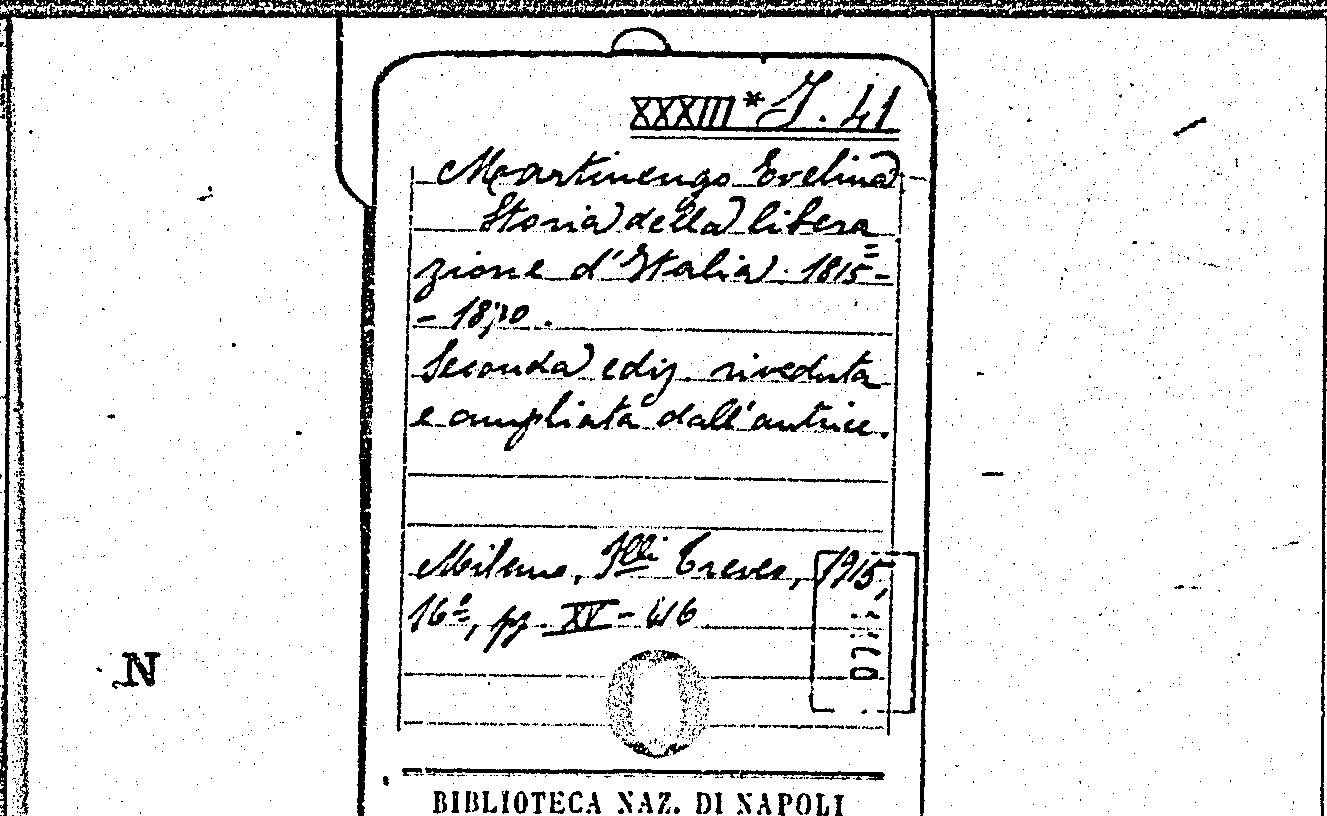 XXXIII * J. 41
Martinengo Evelina
Storia della libera=
zione d'Italia. 1815-
- 1870.
Seconda ediz. riveduta
e ampliata dall'autrice.
Milano, F.lli Treves, 1915,
16°, pp. XV - 416
N
BIBLIOTECA NAZ. DI NAPOLI